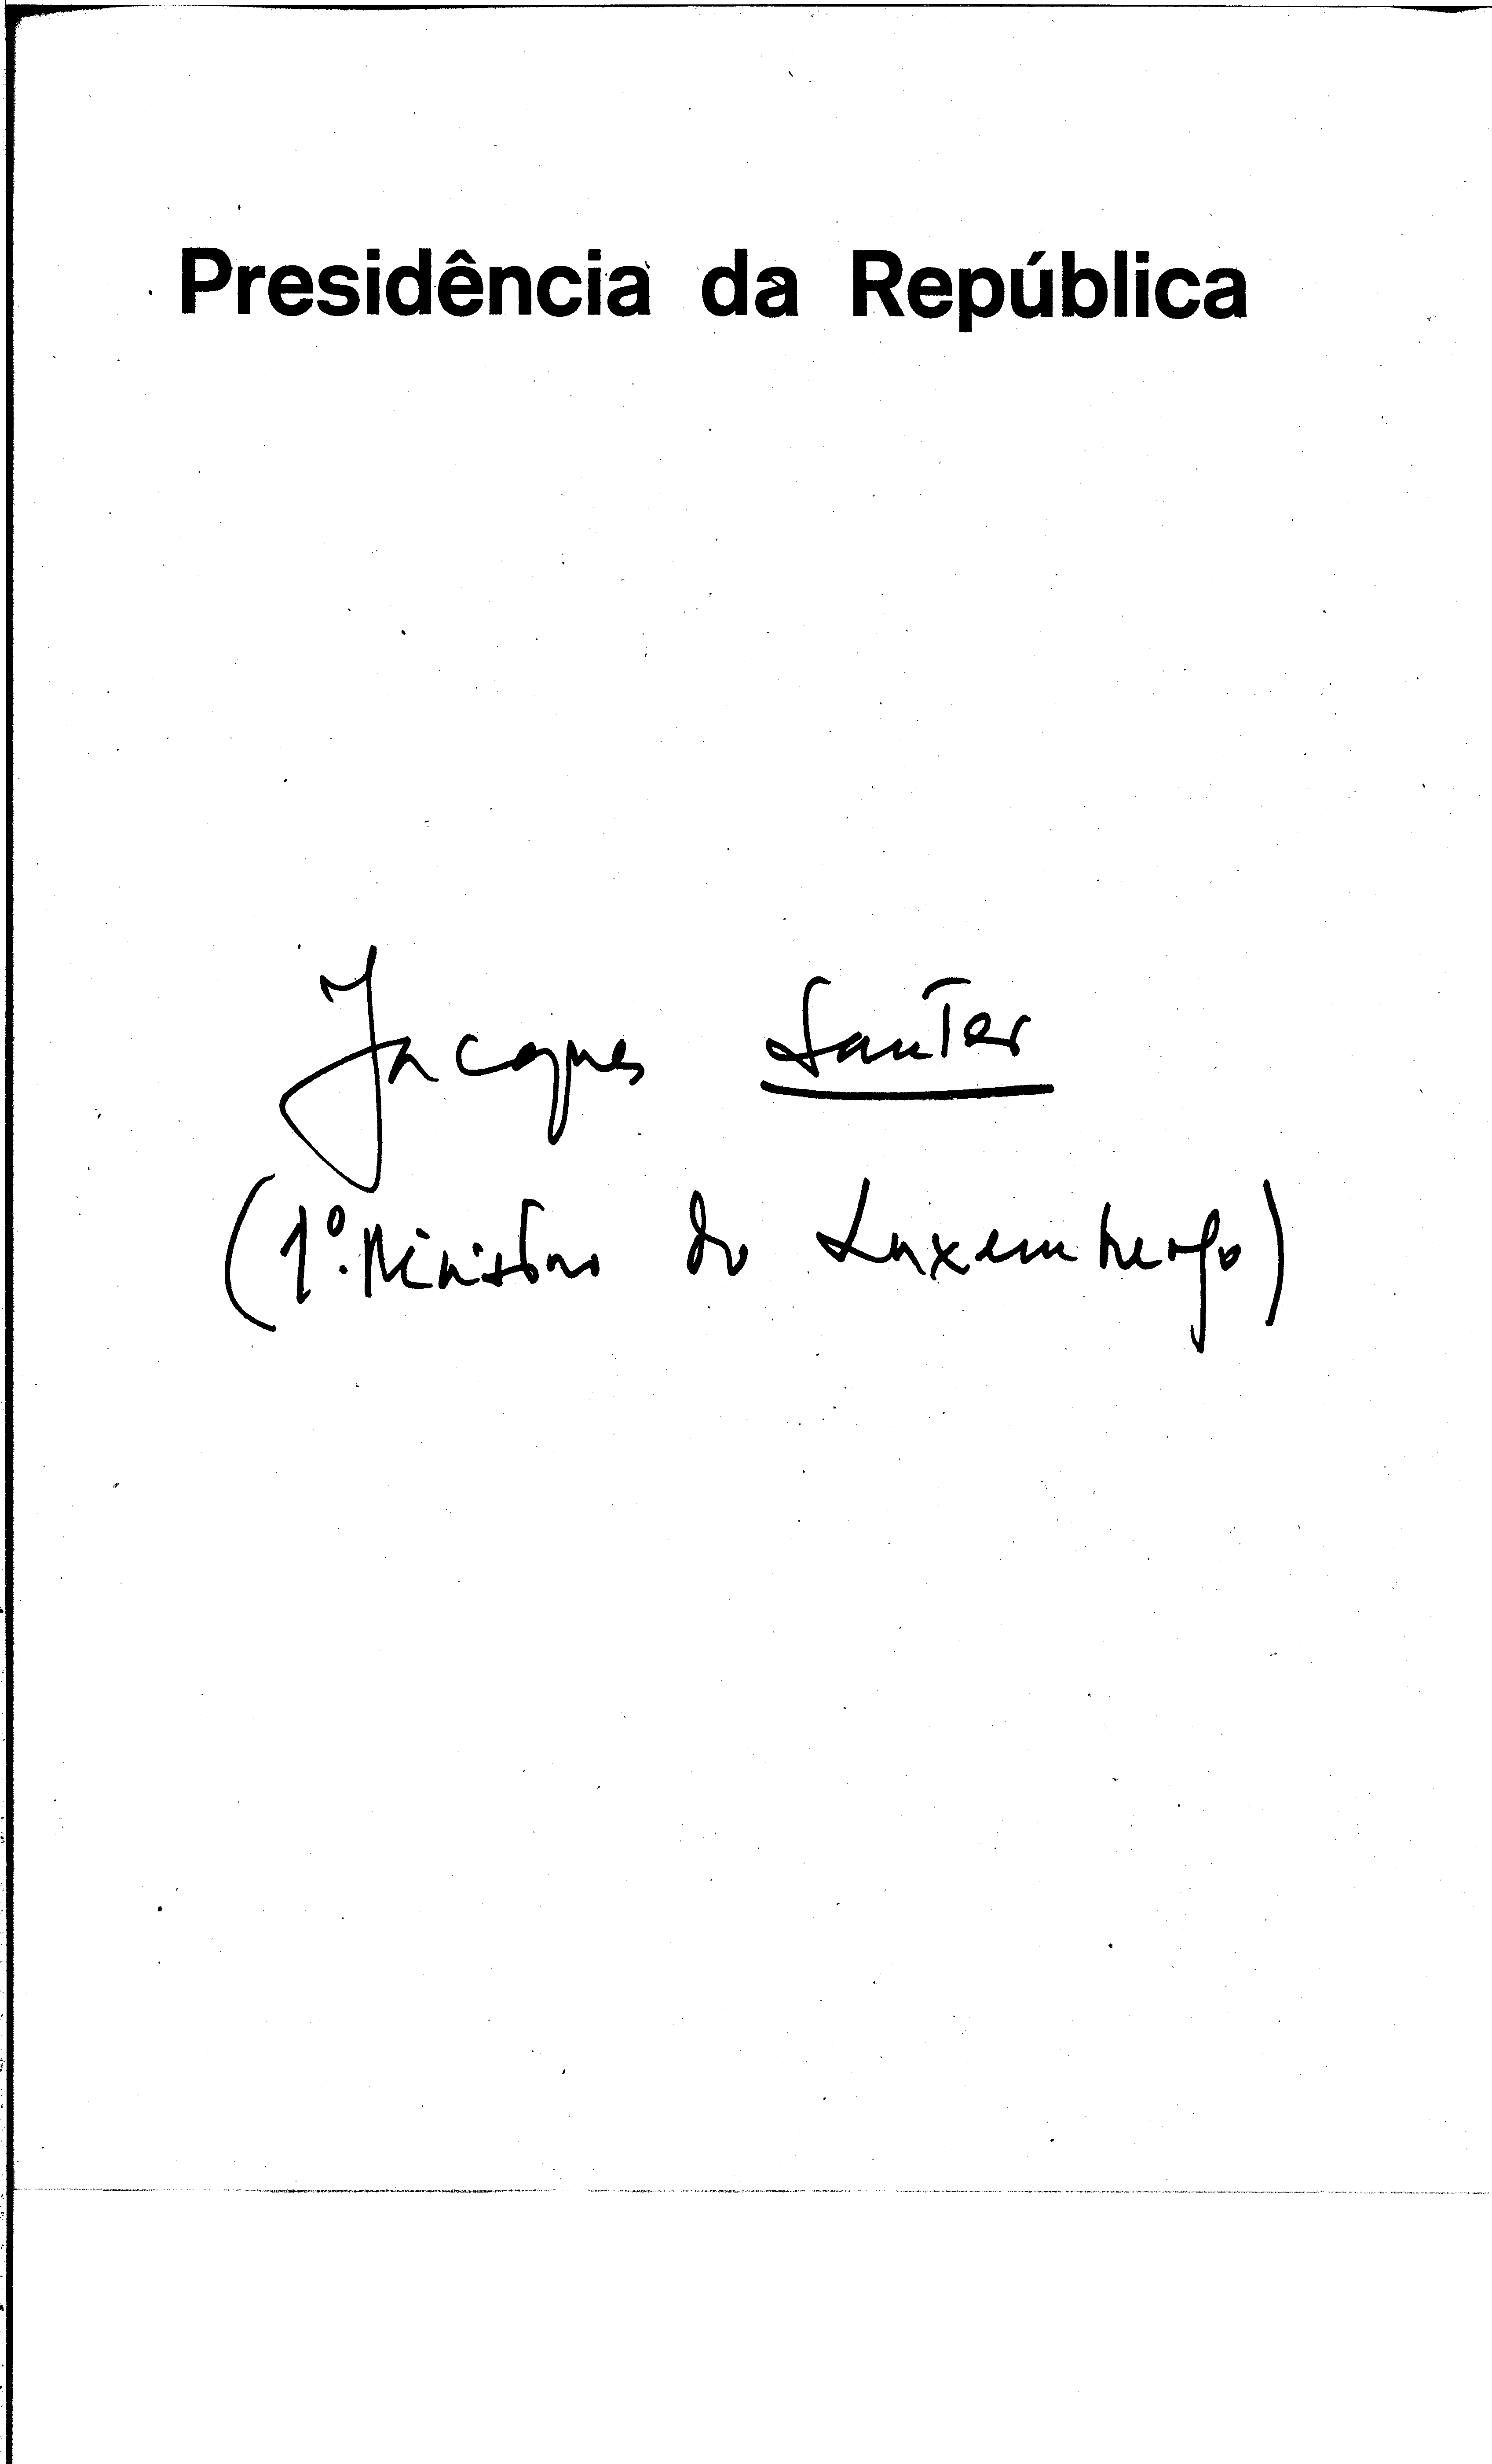 Presidência da República
Jacques Santer
(1º. Ministro do Luxemburgo)